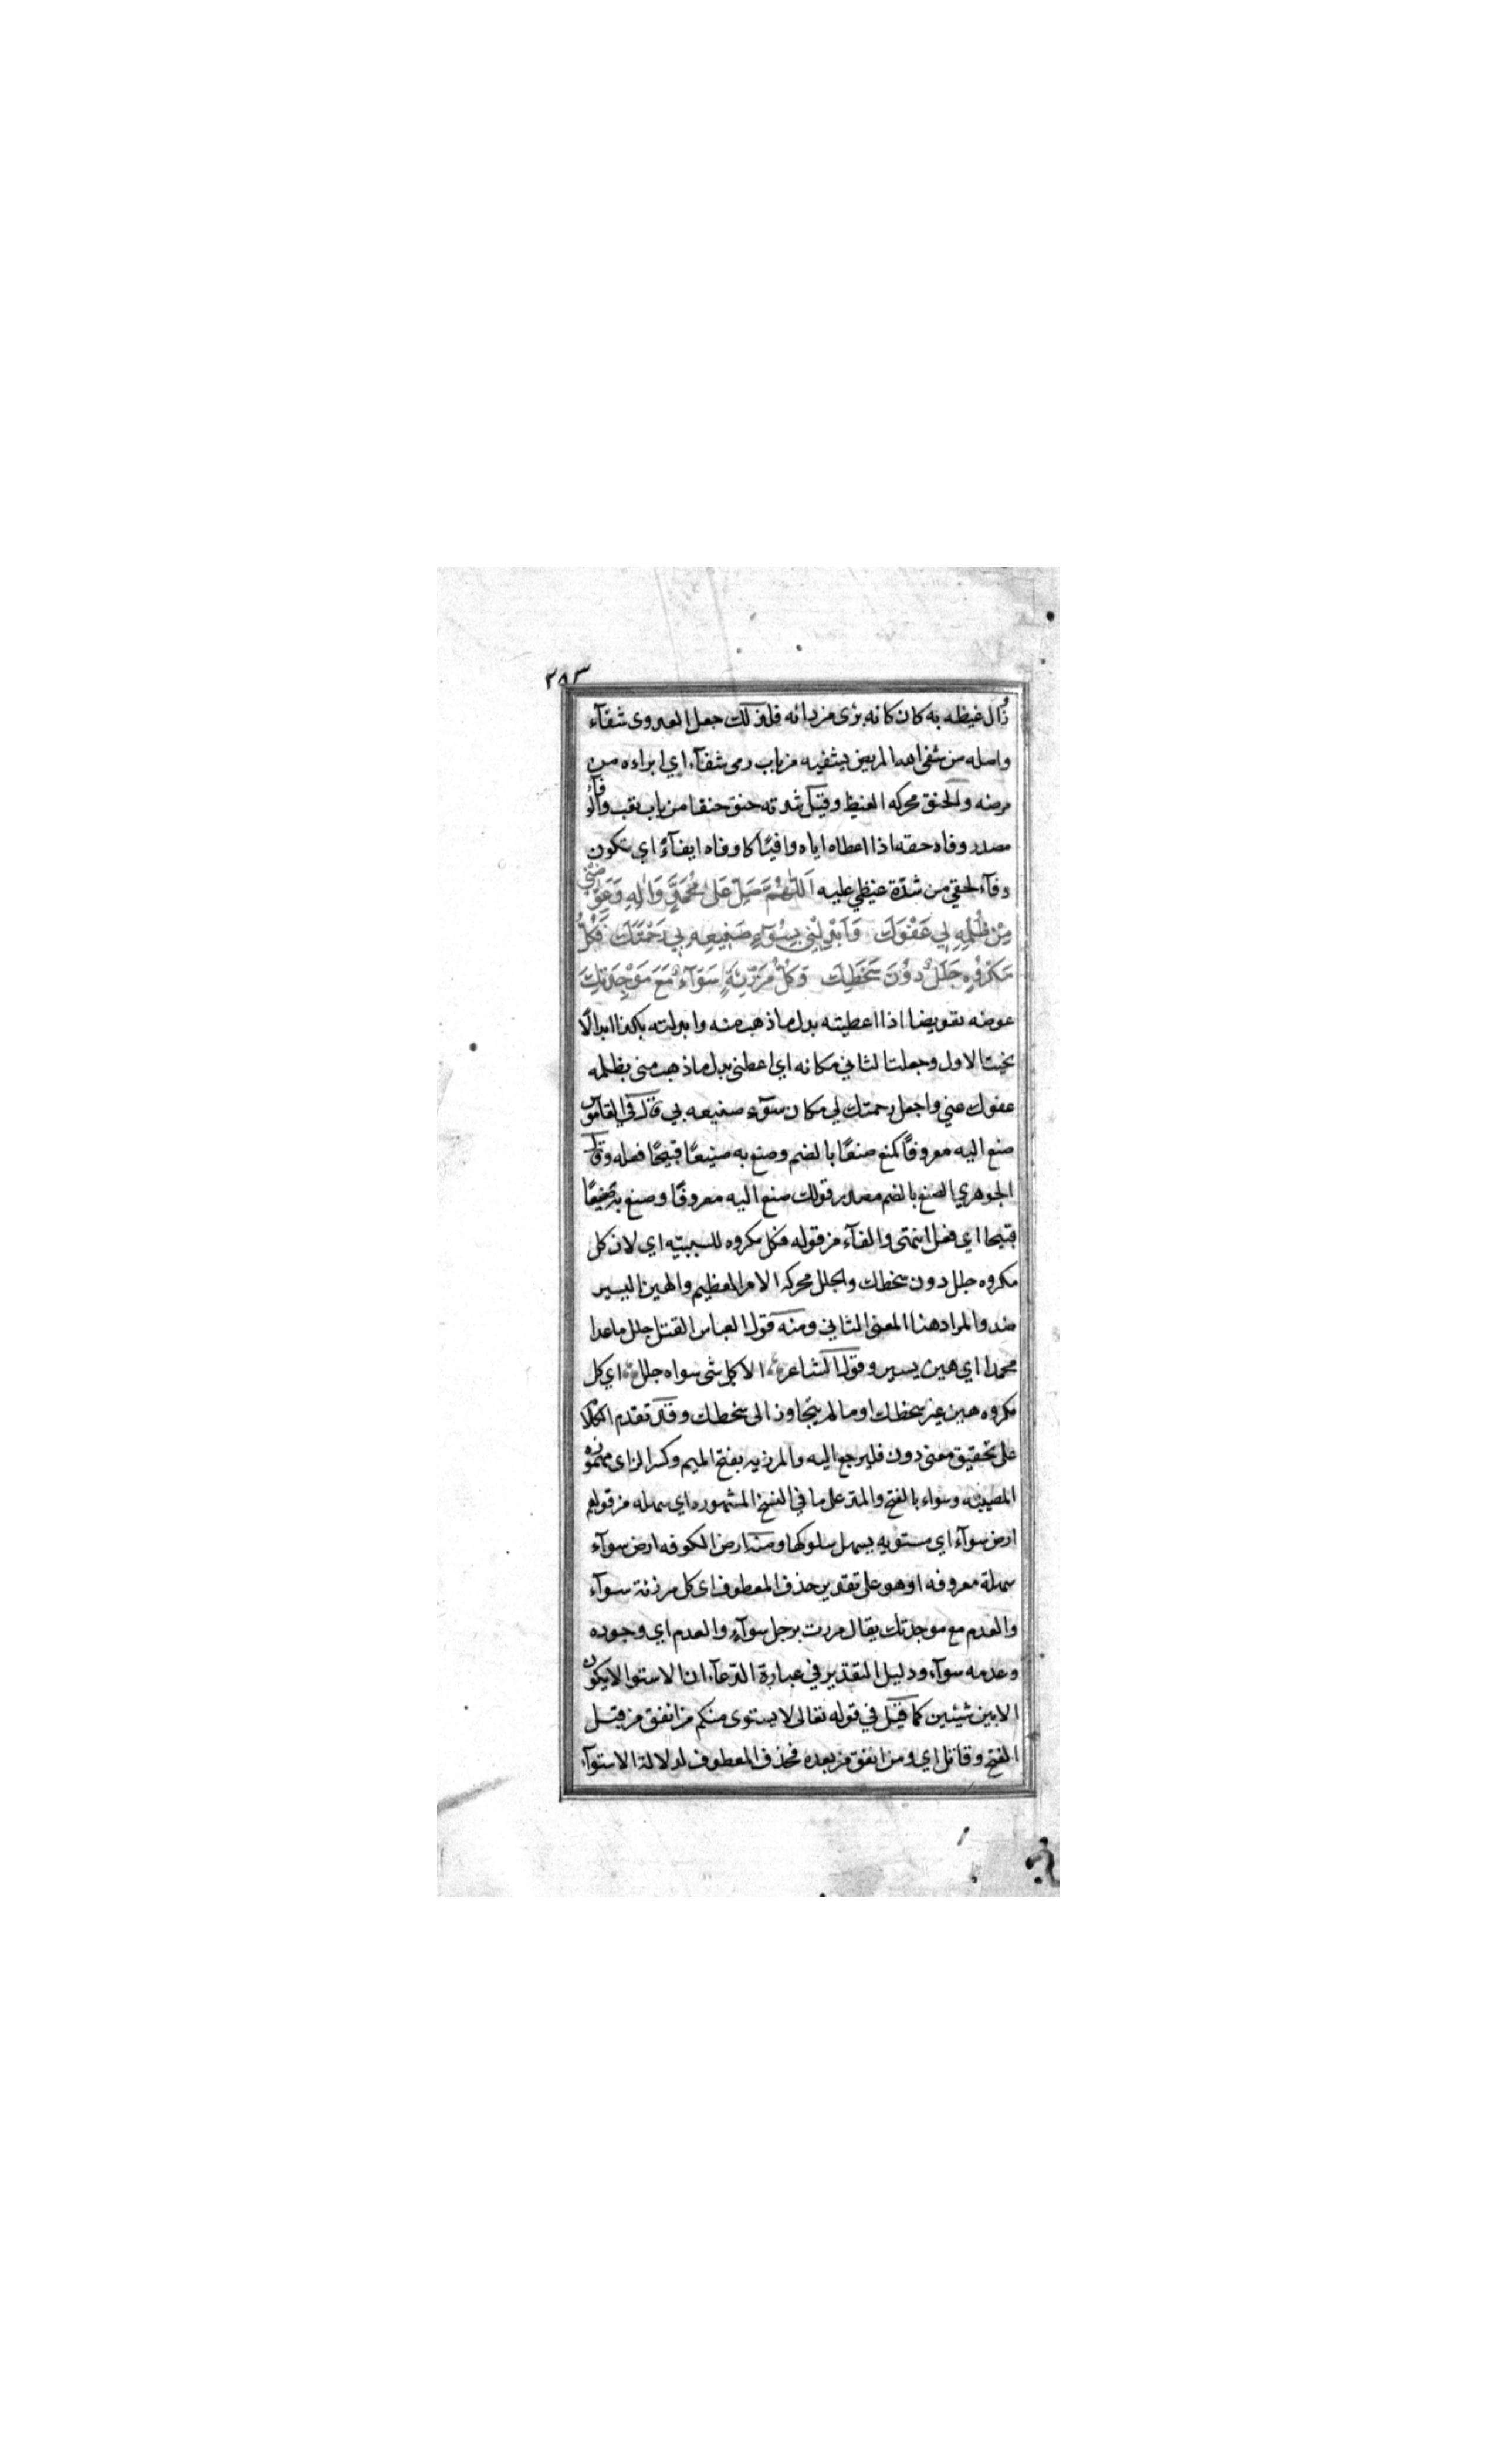 ٢٨٣
زال غيظه به كان كانه برى من دائه فلذلك جعل العدوى شفآء
واصله من شفى الله المريض يشفيه من باب رمى شفآء اي ابراءه من
مرضه والحنق محركه الغيظ وقيل شدته حنق حنقا من باب تعب والوفآء
مصدر وفاه حقه اذا اعطاه اياه وافيًا كاوفاه ايفآءً اي تكون
وفآء لحقي من شدّة غيظي عليه اَللّٰهُمَّ صَلِّ عَلىٰ مُحَمَّدٍ وَاٰلِهِ وَعَوِّضْنِي
مِنْ ظُلْمِهِ لِي عَفْوَكَ وَاَبْدِلْنِي بِسُوۤءِ صَنِيعِهِ بِي رَحْمَتَكَ فَكُلُّ
مَكْرُوهٍ جَلَلٌ دُونَ سَخَطِكَ وَكُلُّ مَرْزِئَةٍ سَوَآءٌ مَعَ مَوْجِدَتِكَ
عوضه تعويضا اذا اعطيته بدل ما ذهب منه وابدلته بكذا ابدالًا
نحيت الاول وجعلت الثاني مكانه اي اعطني بدل ما ذهب مني بظلمه
عفوك عني واجعل رحمتك لي مكان سوٓء صنيعه بي قال في القاموس
صنع اليه معروفًا كمنع صنعًا بالضم وصنع به صنيعًا قبيحًا فعله وقال
الجوهري الصنع بالضم مصدر قولك صنع اليه معروفًا وصنع به صنيعًا
قبيحا اي فعل انتهى والفآء من قوله فكل مكروه للسببيه اي لان كل
مكروه جلل دون سخطك والجلل محركه الامر العظيم والهين اليسير
ضد والمراد هنا المعنى الثاني ومنه قول العباس القتل جلل ما عدا
محمدا اي هين يسير وقول الشاعر، الا كل شى سواه جلل، اي كل
مكروه هين غير سخطك او ما لم يتجاوز الى سخطك وقد تقدم الكلام
على تحقيق معنى دون فليرجع اليه والمرزيه بفتح الميم وكسر الزاى مهموزه
المصيبه وسواء بالفتح والمد على ما في النسخ المشهوره اي سهله من قولهم
ارض سوآءً اي مستويه يسهل سلوكها ومنه ارض الكوفه ارض سوآء
سهلة معروفه او هو على تقدير حذف المعطوف اى كل مرزئة سوآء
والعدم مع موجدتك يقال مررت برجل سوآءٍ والعدم اي وجوده
وعدمه سوآء ودليل التقدير في عبارة الدّعآء ان الاستوا لا يكون
الا بين شيئين كما قيل في قوله تعالى لا يستوى منكم من انفق من قبل
الفتح وقاتل اي ومن انفق من بعده فحذف المعطوف لدلالة الاستوآء